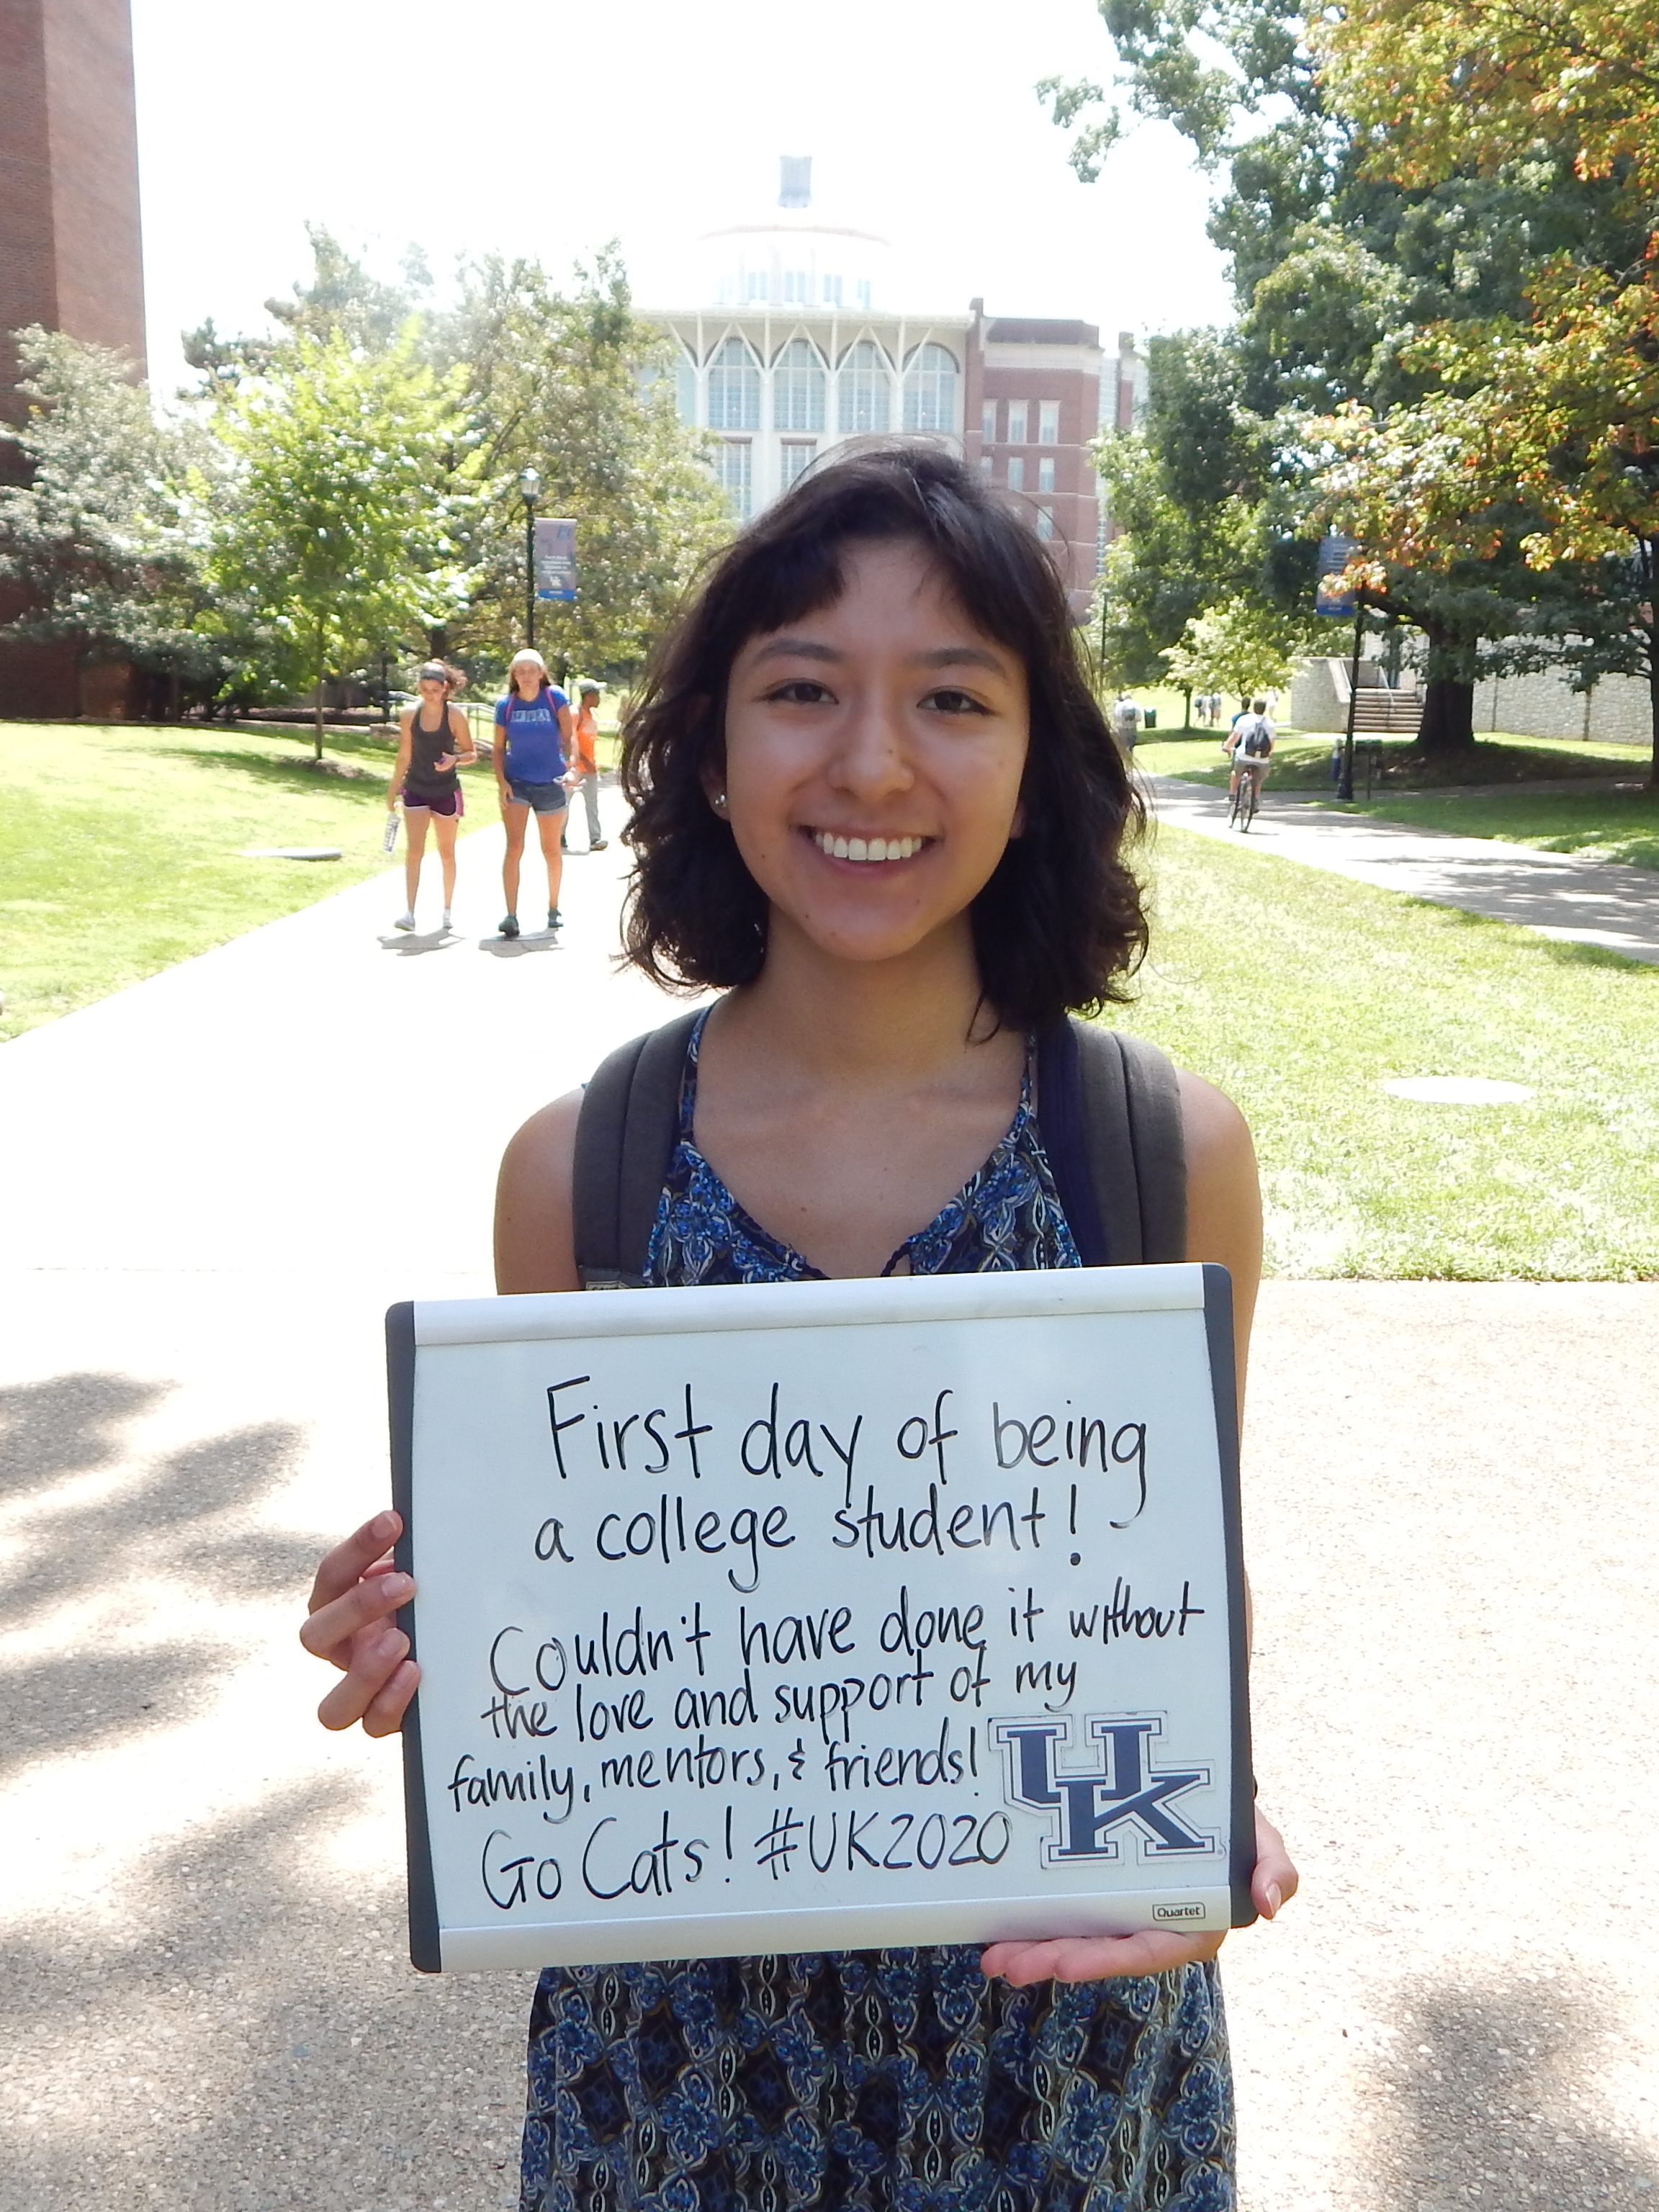 First day of being
a college student!
Couldn't have done it without
the love and support of my
family, mentors, & friends!
Go Cats! #UK2020
UK
Quartet